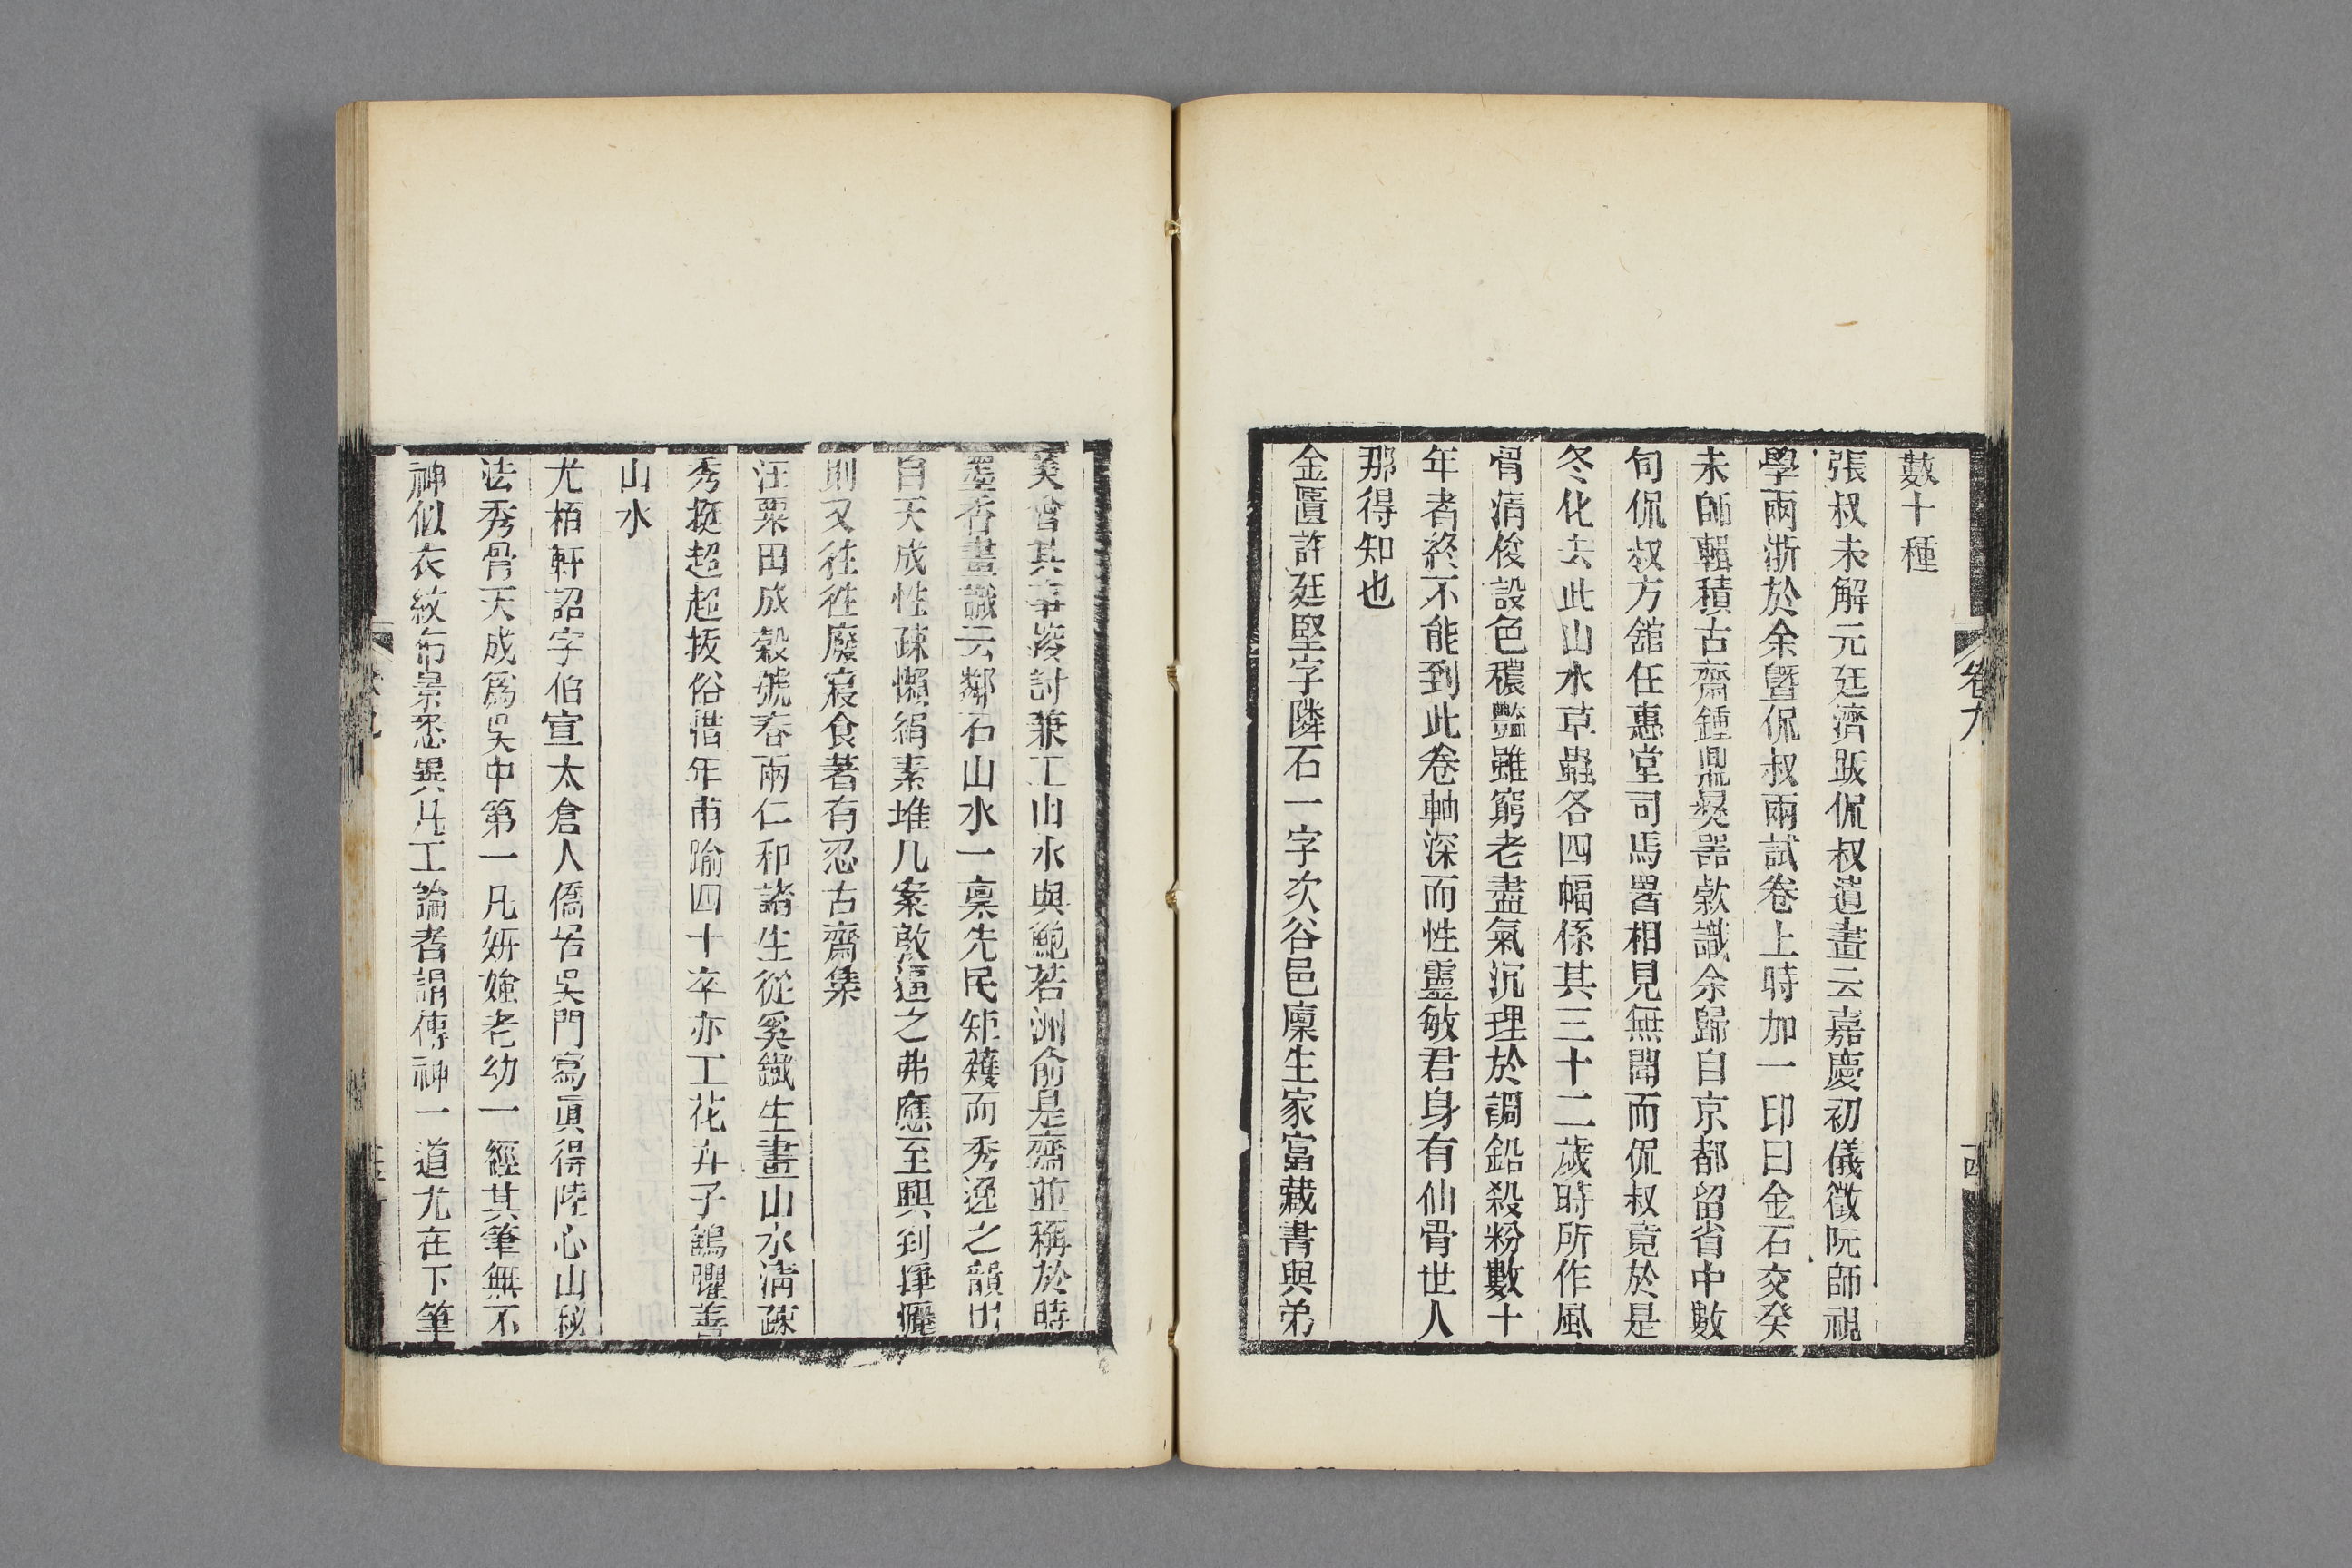 數十種
張叔未解元廷濟跋侃叔遺畫云嘉慶初儀徵阮師視
學兩浙於余曁侃叔兩試卷上時加一印曰金石交癸
未師輯積古齋鍾鼎彝器款識余歸自京都留省中數
旬侃叔方舘任惠堂司馬署相見無閒而侃叔竟於是
冬化去此山水草蟲各四幅係其三十二歲時所作風
骨淸俊設色穠豔雖窮老盡氣沉理於調鉛殺粉數十
年者終不能到此卷軸深而性靈敏君身有仙骨世人
那得知也
金匱許廷堅字隣石一字次谷邑廩生家富藏書與弟
卷九
美會其事陵討兼工山水與鮑若洲俞是齋並稱於時
墨香畫識云鄰石山水一禀先民矩矱而秀逸之韻出
自天成性疎懶絹素堆几案敦逼之弗應至興到揮灑
則又往往廢寢食著有忍古齋集
汪粟田成穀號春雨仁和諸生從奚鐵生畫山水淸疎
秀挺超超拔俗惜年甫踰四十卒亦工花卉子鶴曜善
山水
尤栢軒詔字伯宣太倉人僑居吳門寫眞得陸心山秘
法秀骨天成爲吳中第一凡姸媸老幼一經其筆無不
神似衣紋布景悉異凡工論者謂傳神一道尤在下筆